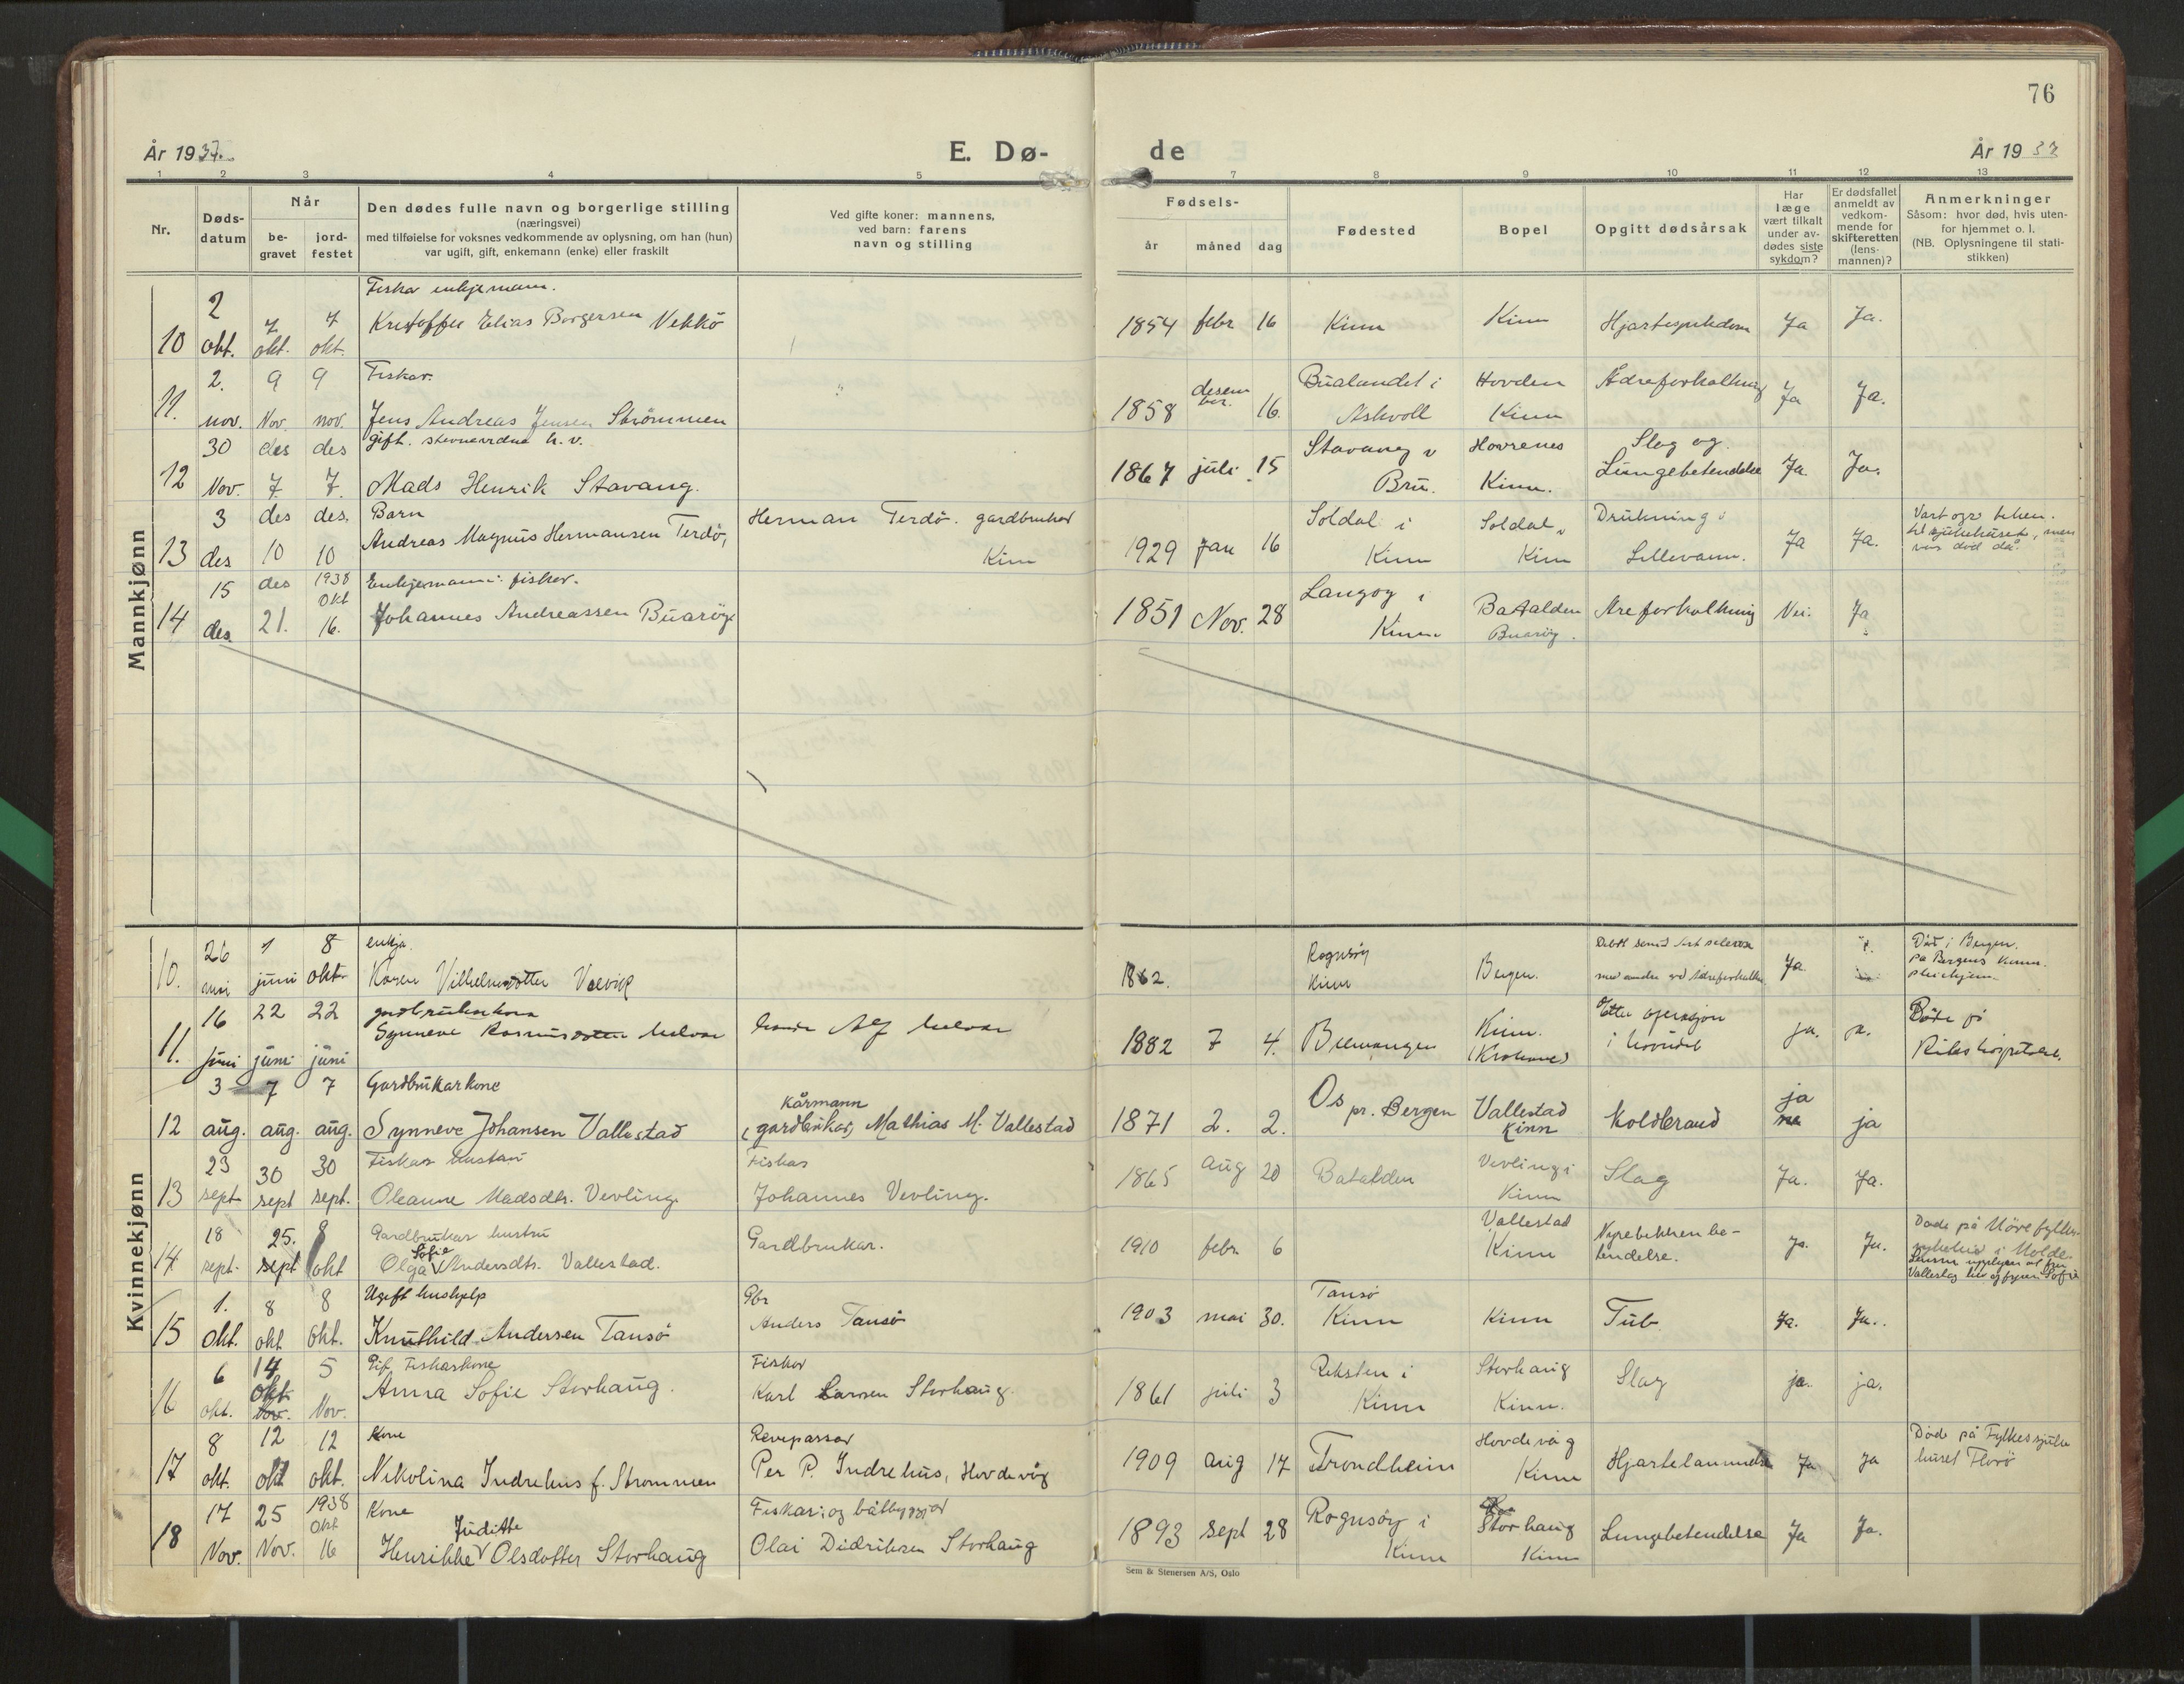 76
År 1937.
E. Dø-
de
År 1937
1 2 3 4 5 7 8 9 10 11 12 13
Nr.
Døds-
datum
Når
be-
gravet
jord-
festet
Den dødes fulle navn og borgerlige stilling
(næringsvei)
med tilføielse for voksnes vedkommende av oplysning, om han (hun)
var ugift, gift, enkemann (enke) eller fraskilt
Ved gifte koner: mannens,
ved barn: farens
navn og stilling
Fødsels-
år
måned
dag
Fødested
Bopel
Opgitt dødsårsak
Har
læge
vært tilkalt
under av-
dødes siste
sykdom?
Er dødsfallet
anmeldt av
vedkom-
mende for
skifteretten
(lens-
mannen)?
Anmerkninger
Såsom: hvor død, hvis uten-
for hjemmet o. l.
(NB. Oplysningene til stati-
stikken)
Mannkjønn
Fiskar enkjemann.
10 2 okt. 7 okt. 7 okt. Kristoffer Elias Borgersen Vekkö 1854 febr 16 Kinn Kinn Hjartesjukdom Ja Ja.
Fiskar.
11. 2. nov. 9 Nov. 9 nov. Jens Andreas Jensen Strömmen 1858 desem ber. 16. Bualandet i Askvoll Hovden Kinn Adreforkalkning Ja Ja.
gift.
12 30 Nov. des 7. des 7. Mads Henrik Stavang. 1867 juli 15 Stavang Bru. Hovrenes Kinn. Slag og Lungebetendelse Ja Ja.
Barn
13 3 des des 10 des. 10 Andreas Magnus Hermansen Terdö, Herman Terdö. gardbrukar Kinn 1929 Jan 16 Soldal i Kinn Soldal Kinn Drukning i Lillevann. Ja Ja. Vart
til sjukehuset, men
var död då.
Enkjemann: fisker.
14 15 des des 21. 1938 okt 16. Johannes Andreassen Buaröy 1851 Nov. 28 Langoy i Kinn Batalden Buaröy. Areforkalkning Nei. Ja
Kvinnekjønn
enkja.
10. 26 mai 1 juni 8 okt. Karen Vilhelmsdotter 1862. Rognsöy Kinn Bergen. Ja Död i Bergen.
på Bergens
pleiehjem.
gardbrukarkona
11. 16 juni 22 juni 22 juni Synneve Rasmusdotter Melvær Alf Melvær 1882 7 4. Bremangen Kinn. Etter operasjon i hovudet ja. ja. Döde på
Rikshospitalet.
Gardbrukarkone
12 3 aug. 7 aug. 7 aug. Synneve Johansen Vallestad Kårmann (gardbrukar) Mathias M. Vallestad 1871 2. 2. Os pr. Bergen Vallestad Kinn Koldbrand ja ja
Fiskar hustru
13 23 sept 30 sept 30 sept. Oleanne Madsdtr. Vevling. Fiskar Johannes Vevling. 1865 aug 20 Batalden Vevling i Kinn Slag Ja. Ja.
Gardbrukar hustru
14 18 sept. 25. sept 8 okt Olga Sofie Andersdtr. Vallestad. Gardbrukar. 1910 febr. 6 Vallestad Kinn Nyrebekkenbe- tendelse. Ja. Ja. Döde på Möre fylkes
sykehus i Molde.
Ugift hushjelp
15 1. okt. 8 okt 8 okt. Knuthild Andersen Tansö Gbr Anders Tansö 1903 mai 30. Tansö Kinn Kinn Tub Ja. Ja.
Gift Fiskarkone
16 6 okt. 14 okt. Nov. 5 Nov. Anna Sofie Storhaug. Fiskar Karl Larsen Storhaug. 1861 juli 3 Reksten i Kinn Storhaug Kinn. Slag ja. ja.
Kone
17 8 okt. 12 okt 12 okt. Nikolina Indrehus f. Strommen Revepassar Per P. Indrehus, Hovdevåg 1909 aug 17 Trondheim Hovdevåg Kinn Hjartelammelse Ja Ja Döde på Fylkessjuke
huset Florö
Kone
18 17 Nov. 25 Nov. 1938 okt 16 Henrikke Juditte Olsdotter Storhaug Fiskar; og båtbyggjar Olai Didriksen Storhaug 1893 sept 28 Rognsöy i Kinn Storhaug Kinn Lungebetendelse Ja Ja.
Sem & Stenersen A/S, Oslo